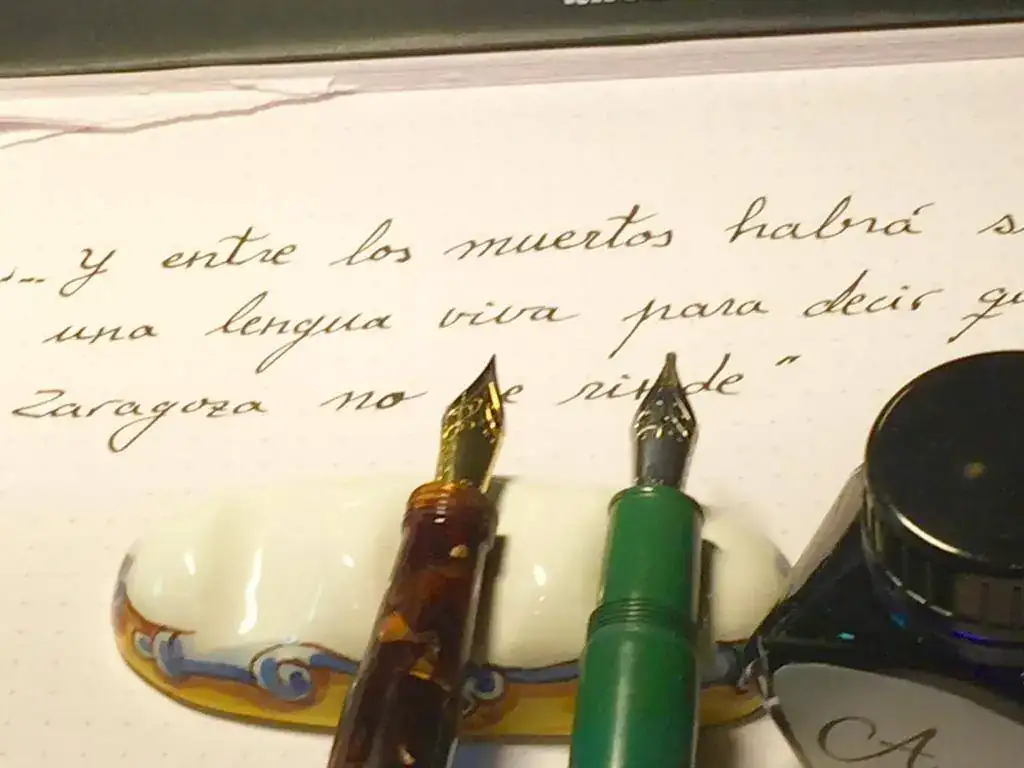 ... y entre los muertos habrá s
una lengua viva para decir qu
Zaragoza no se rinde"
CA